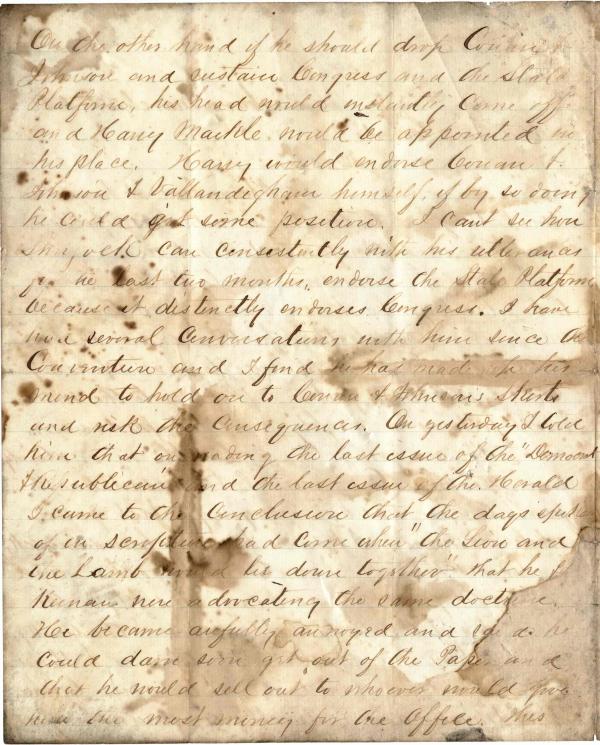 On the other hand if he should drop Cowan &
Johnson and sustain Congress and the State
Platform, his head would instantly come off
and Harry would be appointed in
his place. Harry would endorse Cowan &
Johnson & Vallandigham himself, if by so doing
he could get some position. I cant see how
can consistently with his utterances
for the last two months, endorse the State Platform
because it distinctly endorses Congress. I have
had several conversations with him since the
Convention and I find he has made up his
mind to hold on to Cowan & Johnson's skirts
and risk the consequences. On yesterday I told
him that on reading the last issue of the "Democrat
& Republican" and the last issue of the Herald
I came to the conclusion that the days spoken
of in scripture had come when "the Lion and
the Lamb would lie down together" that he &
Keenan were advocating the same doctrine.
He became awfully annoyed and said he
could damn soon get out of the Paper and
that he would sell out to whoever would give
him the most money for the Office. This